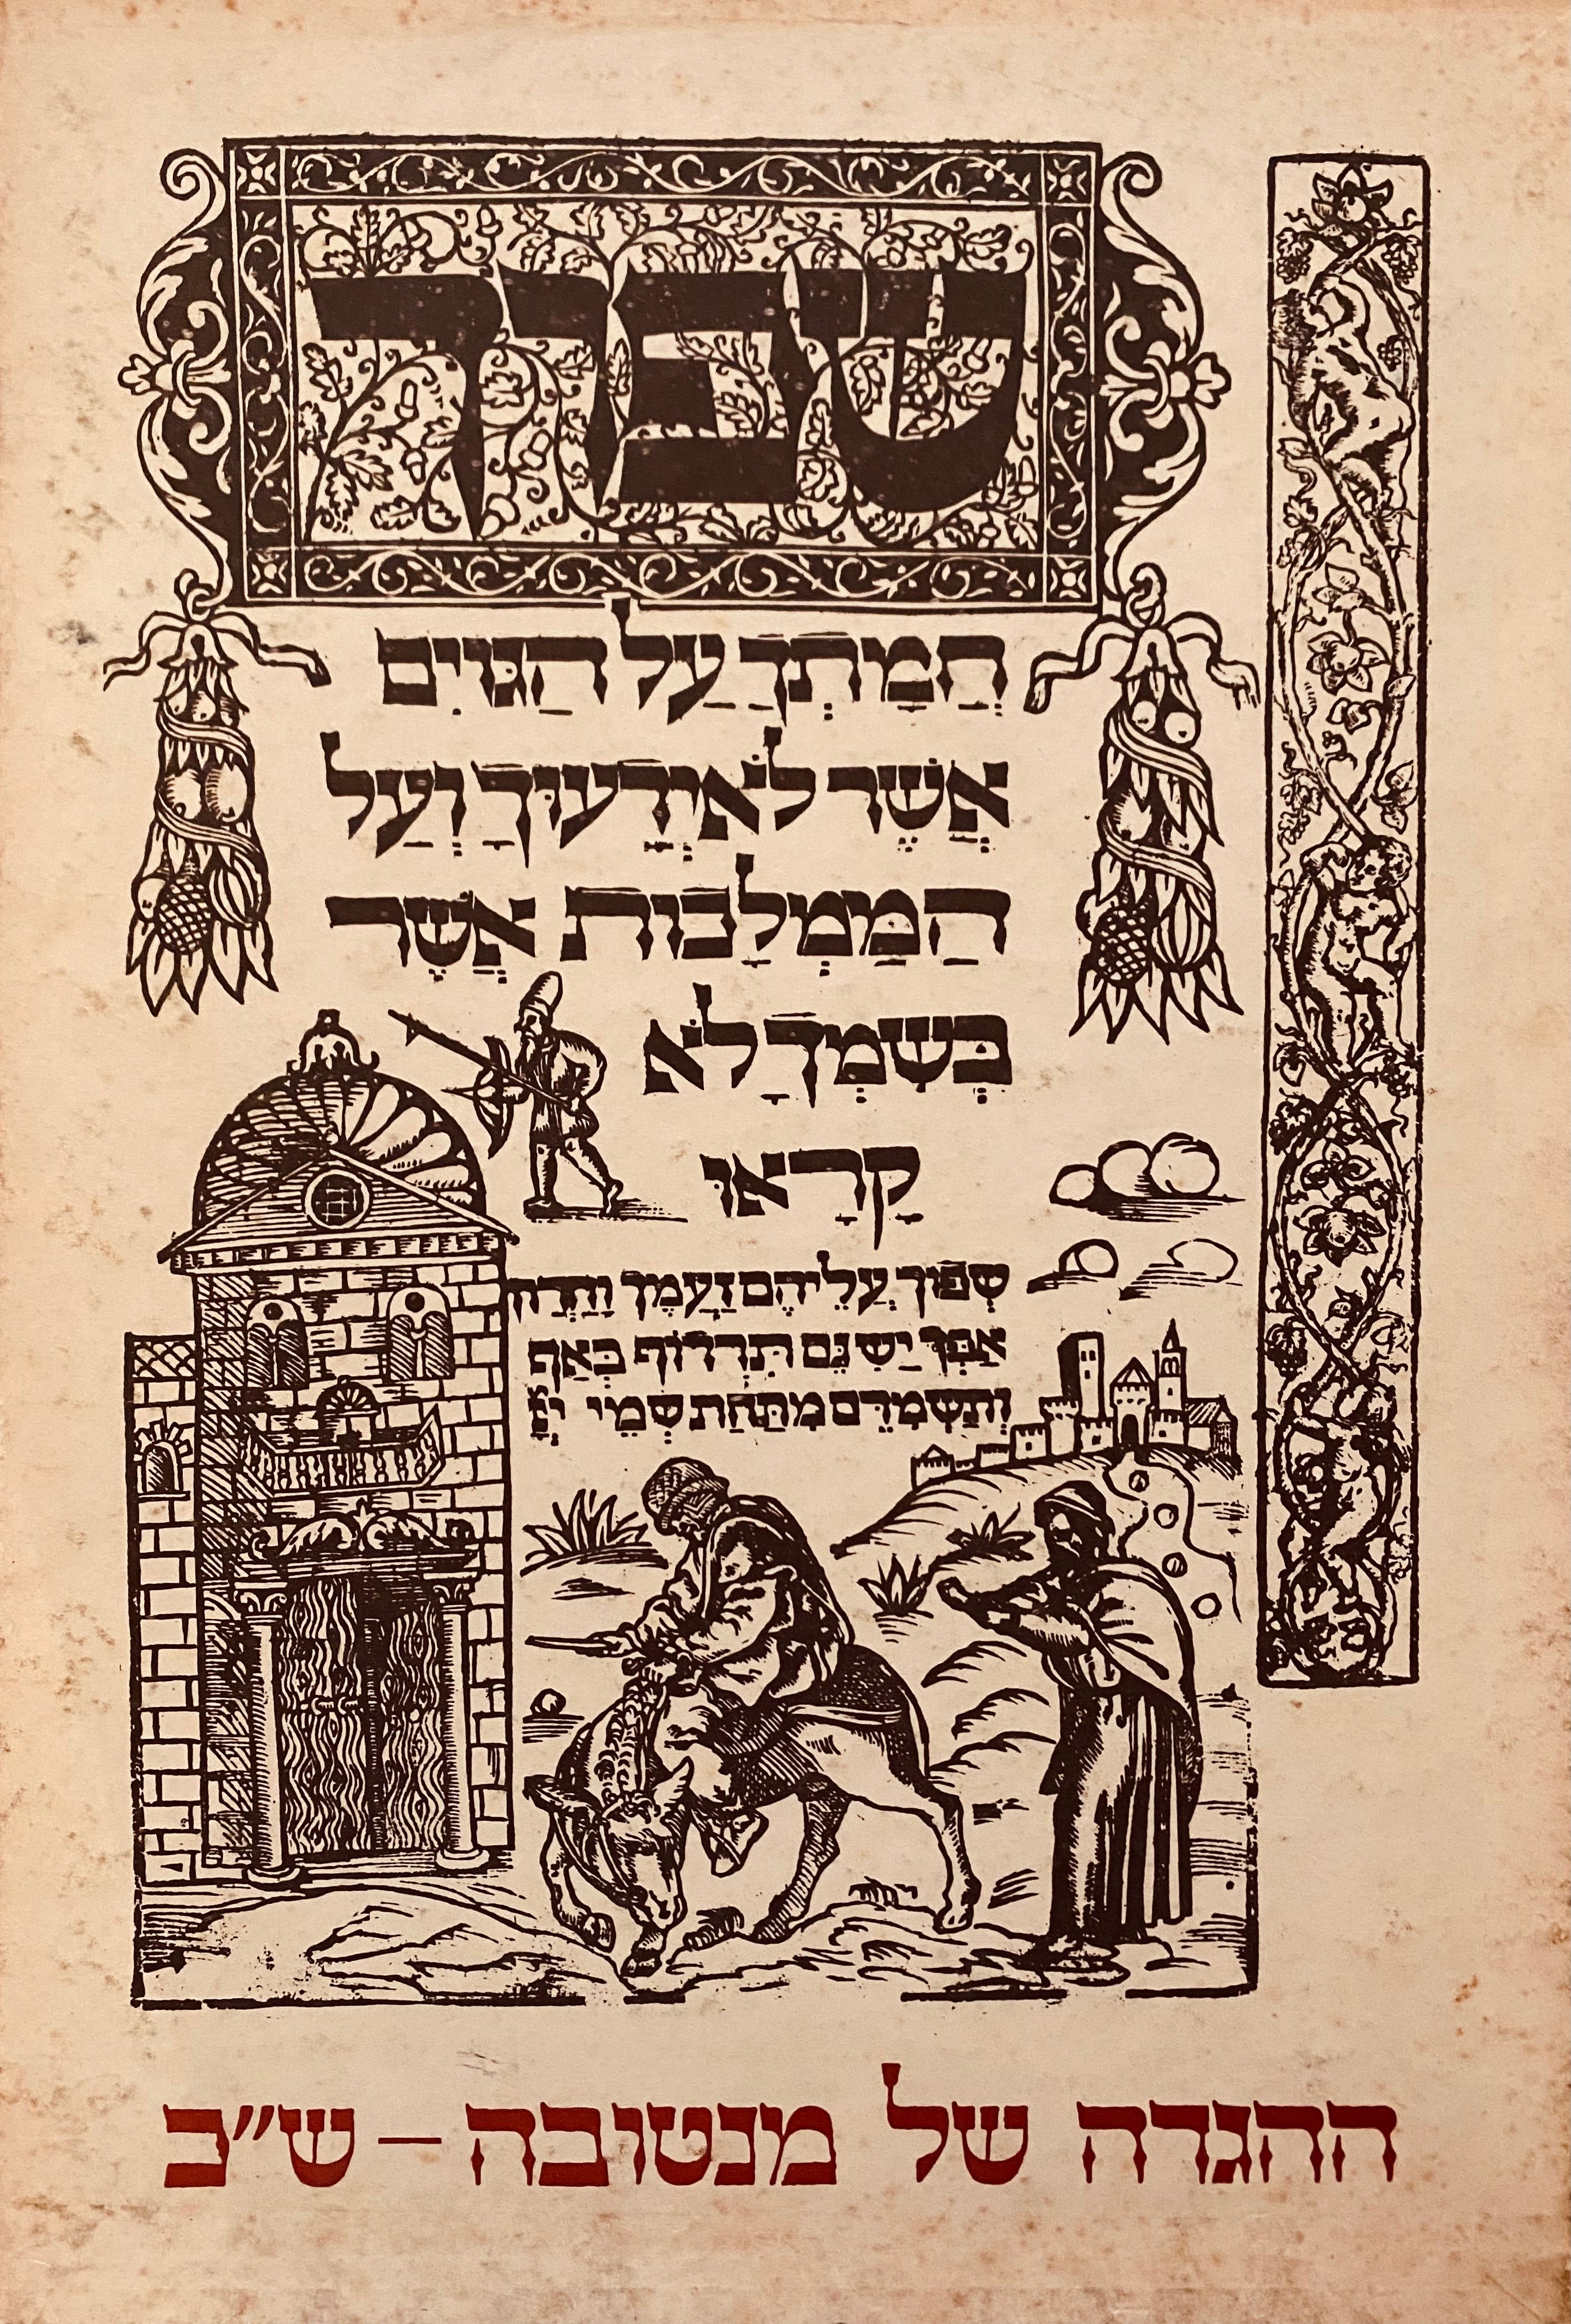 שפוך
חֲמָתְךָ עַל הַגּוֹיִם
אֲשֶׁר לֹא יְדָעוּךָ וְעַל
הַמַּמְלָכוֹת אֲשֶׁר
בְּשִׁמְךָ לֹא
קָרָאוּ
שְׁפוֹךְ עֲלֵיהֶם זַעְמֶךָ וַחֲרוֹן
אַפְּךָ יַשִּׂיגֵם תִּרְדּוֹף בְּאַף
וְתַשְׁמִדֵם מִתַּחַת שְׁמֵי יְיָ
ההגדה של מנטובה – ש״כ